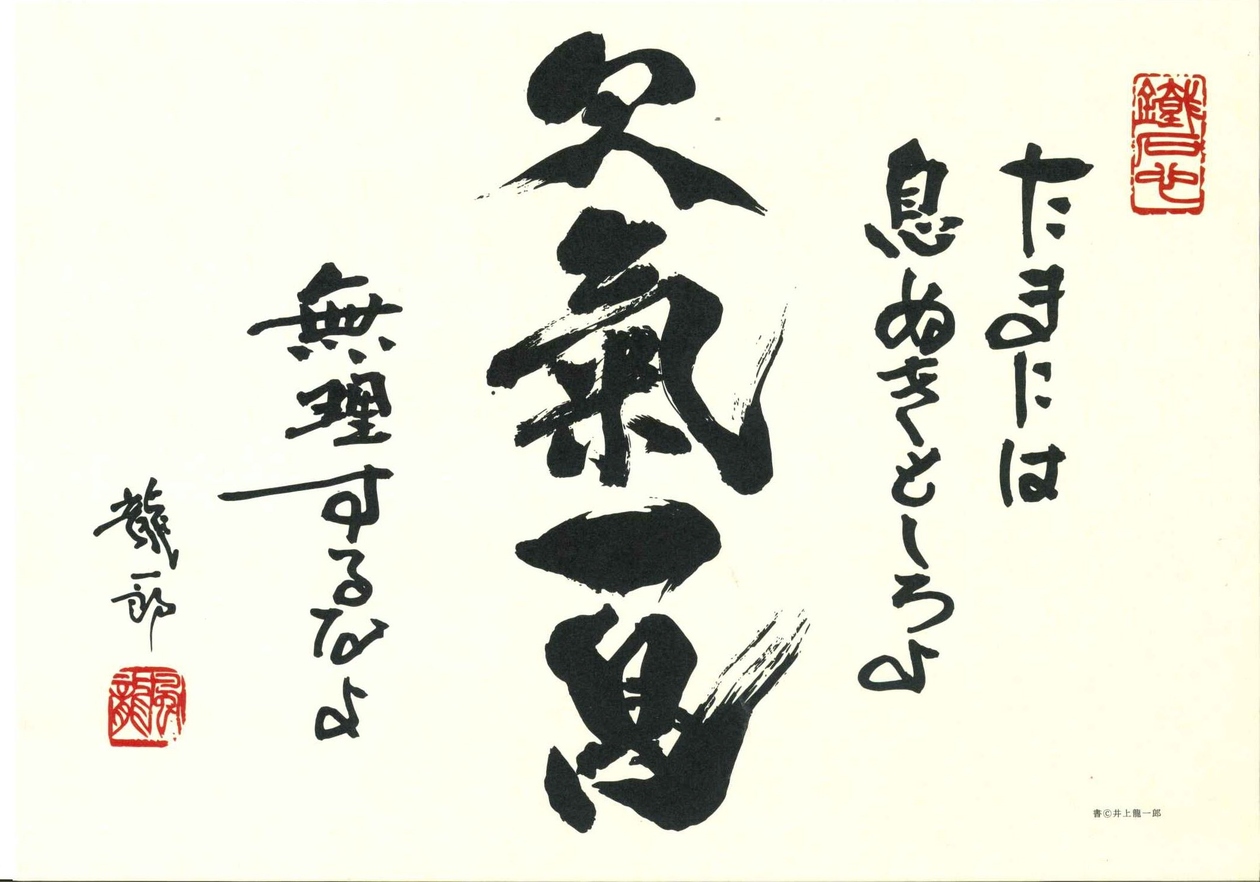 たまには
息ぬきをしろよ
氣一息
無理するなよ
龍一郎
書©井上龍一郎